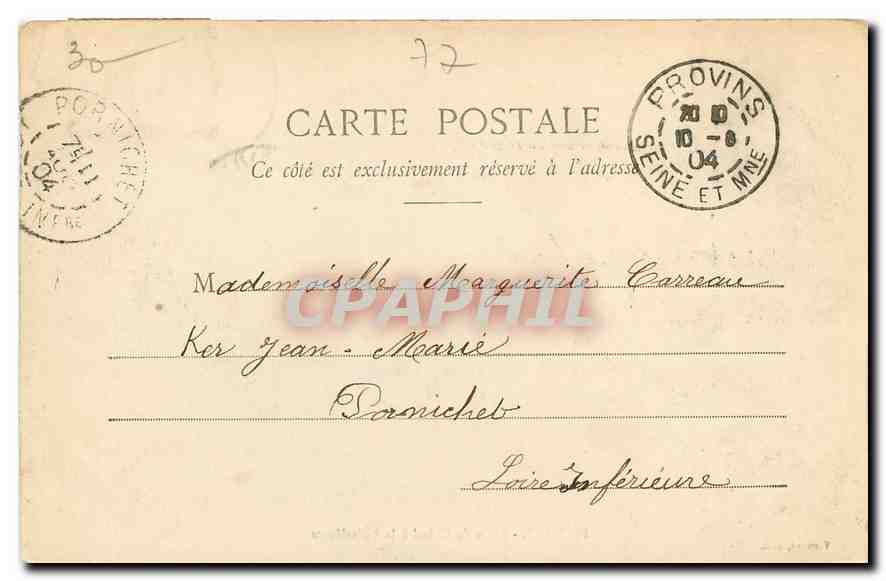 30
77
CARTE POSTALE
Ce côté est exclusivement réservé à l'adresse
PROVINS
20 10
10 - 8
04
SEINE ET MNE
PORNICHET
04
INFRE
Mademoiselle Marguerite Carreau
CPAPHIL
Ker Jean-Marie
Pornichet
Loire Inférieure